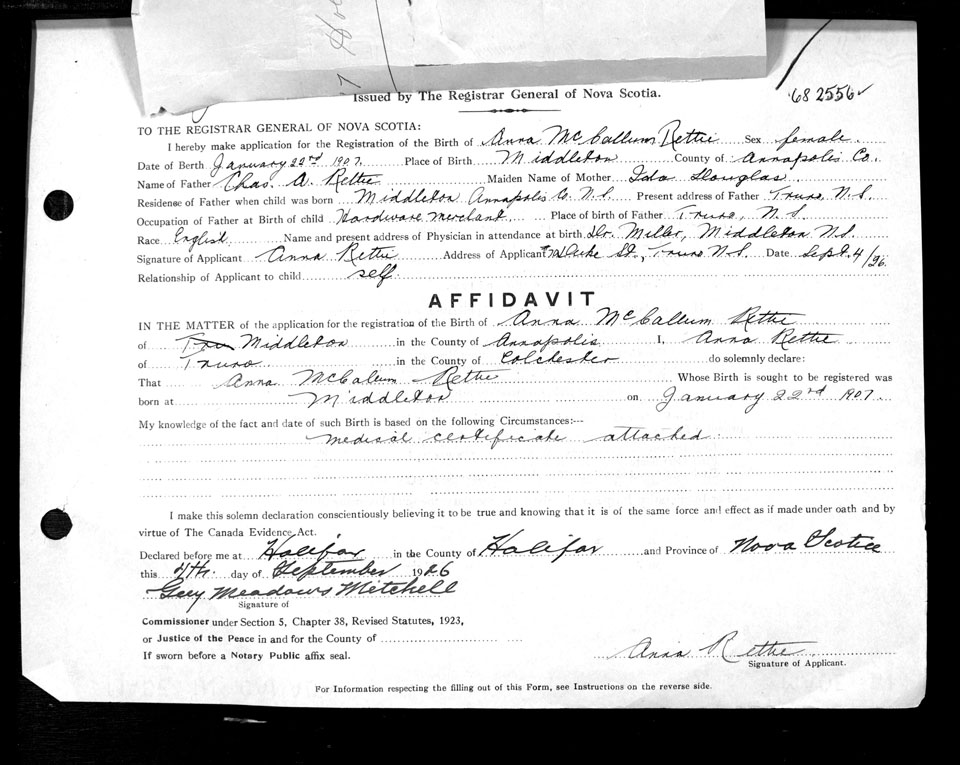 Issued by The Registrar General of Nova Scotia.
68 2556
TO THE REGISTRAR GENERAL OF NOVA SCOTIA:
I hereby make application for the Registration of the Birth of Anna McCallum Rettie Sex female
Date of Berth January 22nd 1907. Place of Birth Middleton County of Annapolis Co.
Name of Father Chas. A. Rettie Maiden Name of Mother Ida Douglas
Residence of Father when child was born Middleton Annapolis Co N.S. Present address of Father Truro, N.S.
Occupation of Father at Birth of child Hardware Merchant. Place of birth of Father Truro, N.S.
Race English. Name and present address of Physician in attendance at birth Dr. Miller, Middleton N.S.
Signature of Applicant Anna Rettie Address of Applicant Duke St., Truro N.S. Date Sept. 4/26.
Relationship of Applicant to child self
AFFIDAVIT
IN THE MATTER of the application for the registration of the Birth of Anna McCallum Rettie
of Middleton in the County of Annapolis I, Anna Rettie
of Truro in the County of Colchester do solemnly declare:
That Anna McCalum Rettie Whose Birth is sought to be registered was
born at Middleton on January 22nd 1907.
My knowledge of the fact and date of such Birth is based on the following Circumstances:--
medical certificate attached.
I make this solemn declaration conscientiously believing it to be true and knowing that it is of the same force and effect as if made under oath and by
virtue of The Canada Evidence Act.
Declared before me at Halifax in the County of Halifax and Province of Nova Scotia
this 4th. day of September 1926
Guy Meadows Mitchell
Signature of
Commissioner under Section 5, Chapter 38, Revised Statutes, 1923,
or Justice of the Peace in and for the County of
If sworn before a Notary Public affix seal.
Anna Rettie
Signature of Applicant.
For Information respecting the filling out of this Form, see Instructions on the reverse side.